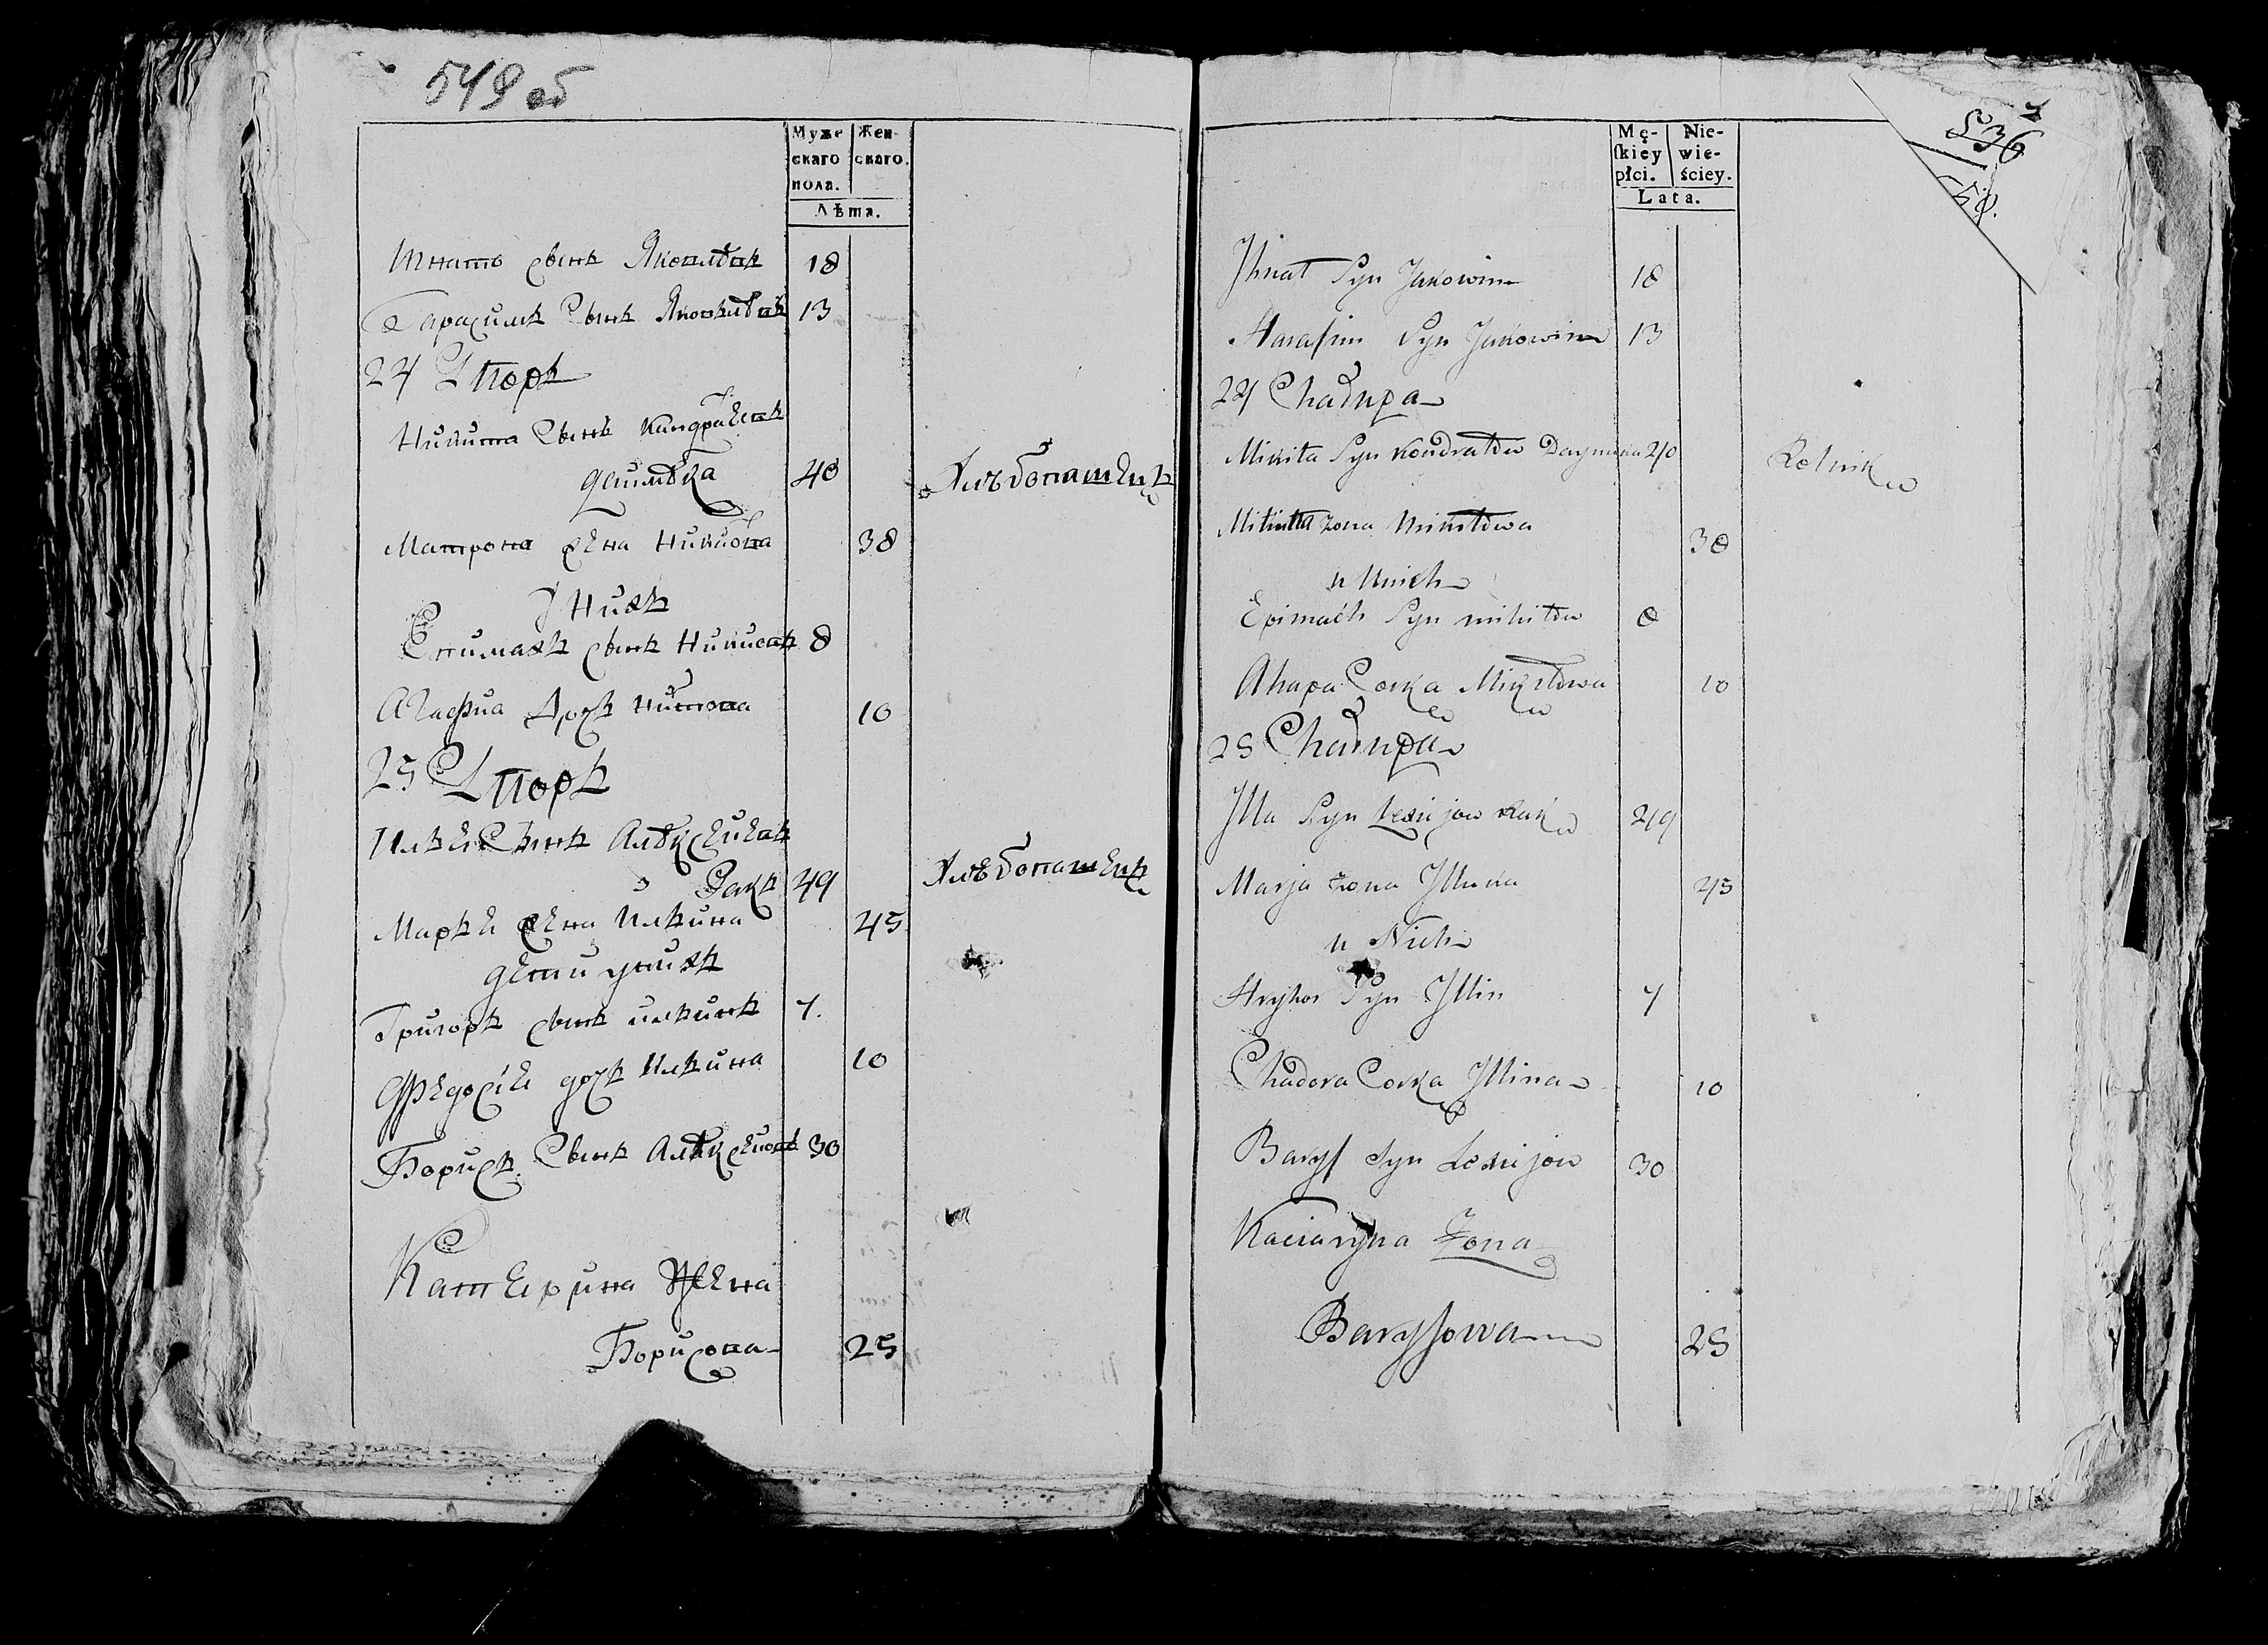 549 об
Муже
скаго
пола.
Жен
скаго.
Лѣта.
Игнатъ сынъ Яковлевъ 18
Гарасимъ Сынъ Яковлевъ 13
24 Дворъ
Никита Сынъ Кондратевъ
40 Хлебопашецъ
Матрона жена Никитова 38
У Нихъ
Епимахъ сынъ Никитовъ 8
Агафиа Дочь Никитова 10
25 Дворъ
Илья Сынъ Алексеевъ
Ракъ 49 Хлебопашецъ
Марья жена Ильина 45
дети у нихъ
Григоръ сынъ ильинъ 7.
Федосія дочь Ильина 10
Борисъ Сынъ Алексеевъ 30
Катерина Жена
Борисова 25
536
Mę-
ſkiey
płci.
Nie-
wie-
ściey.
Lata.
Jhnat Syn Jakowin 18
Harasim Syn Jakowin 13
24 Chałupa
Mikita Syn Kondratow 40 Rolnik
żona Mikitowa 38
u Nich
Epimach Syn mikitow 8
Ahapa Corka Mikitowa 10
25 Chałupa
Jlla Syn Lexiejow Rak 49
Marja żona Jllina 45
u Nich
Hryhor Syn Jllin 7
Chadora Corka Jllina 10
Barys Syn Lexiejow 30
Kaciaryna Żona
Barysowa 25